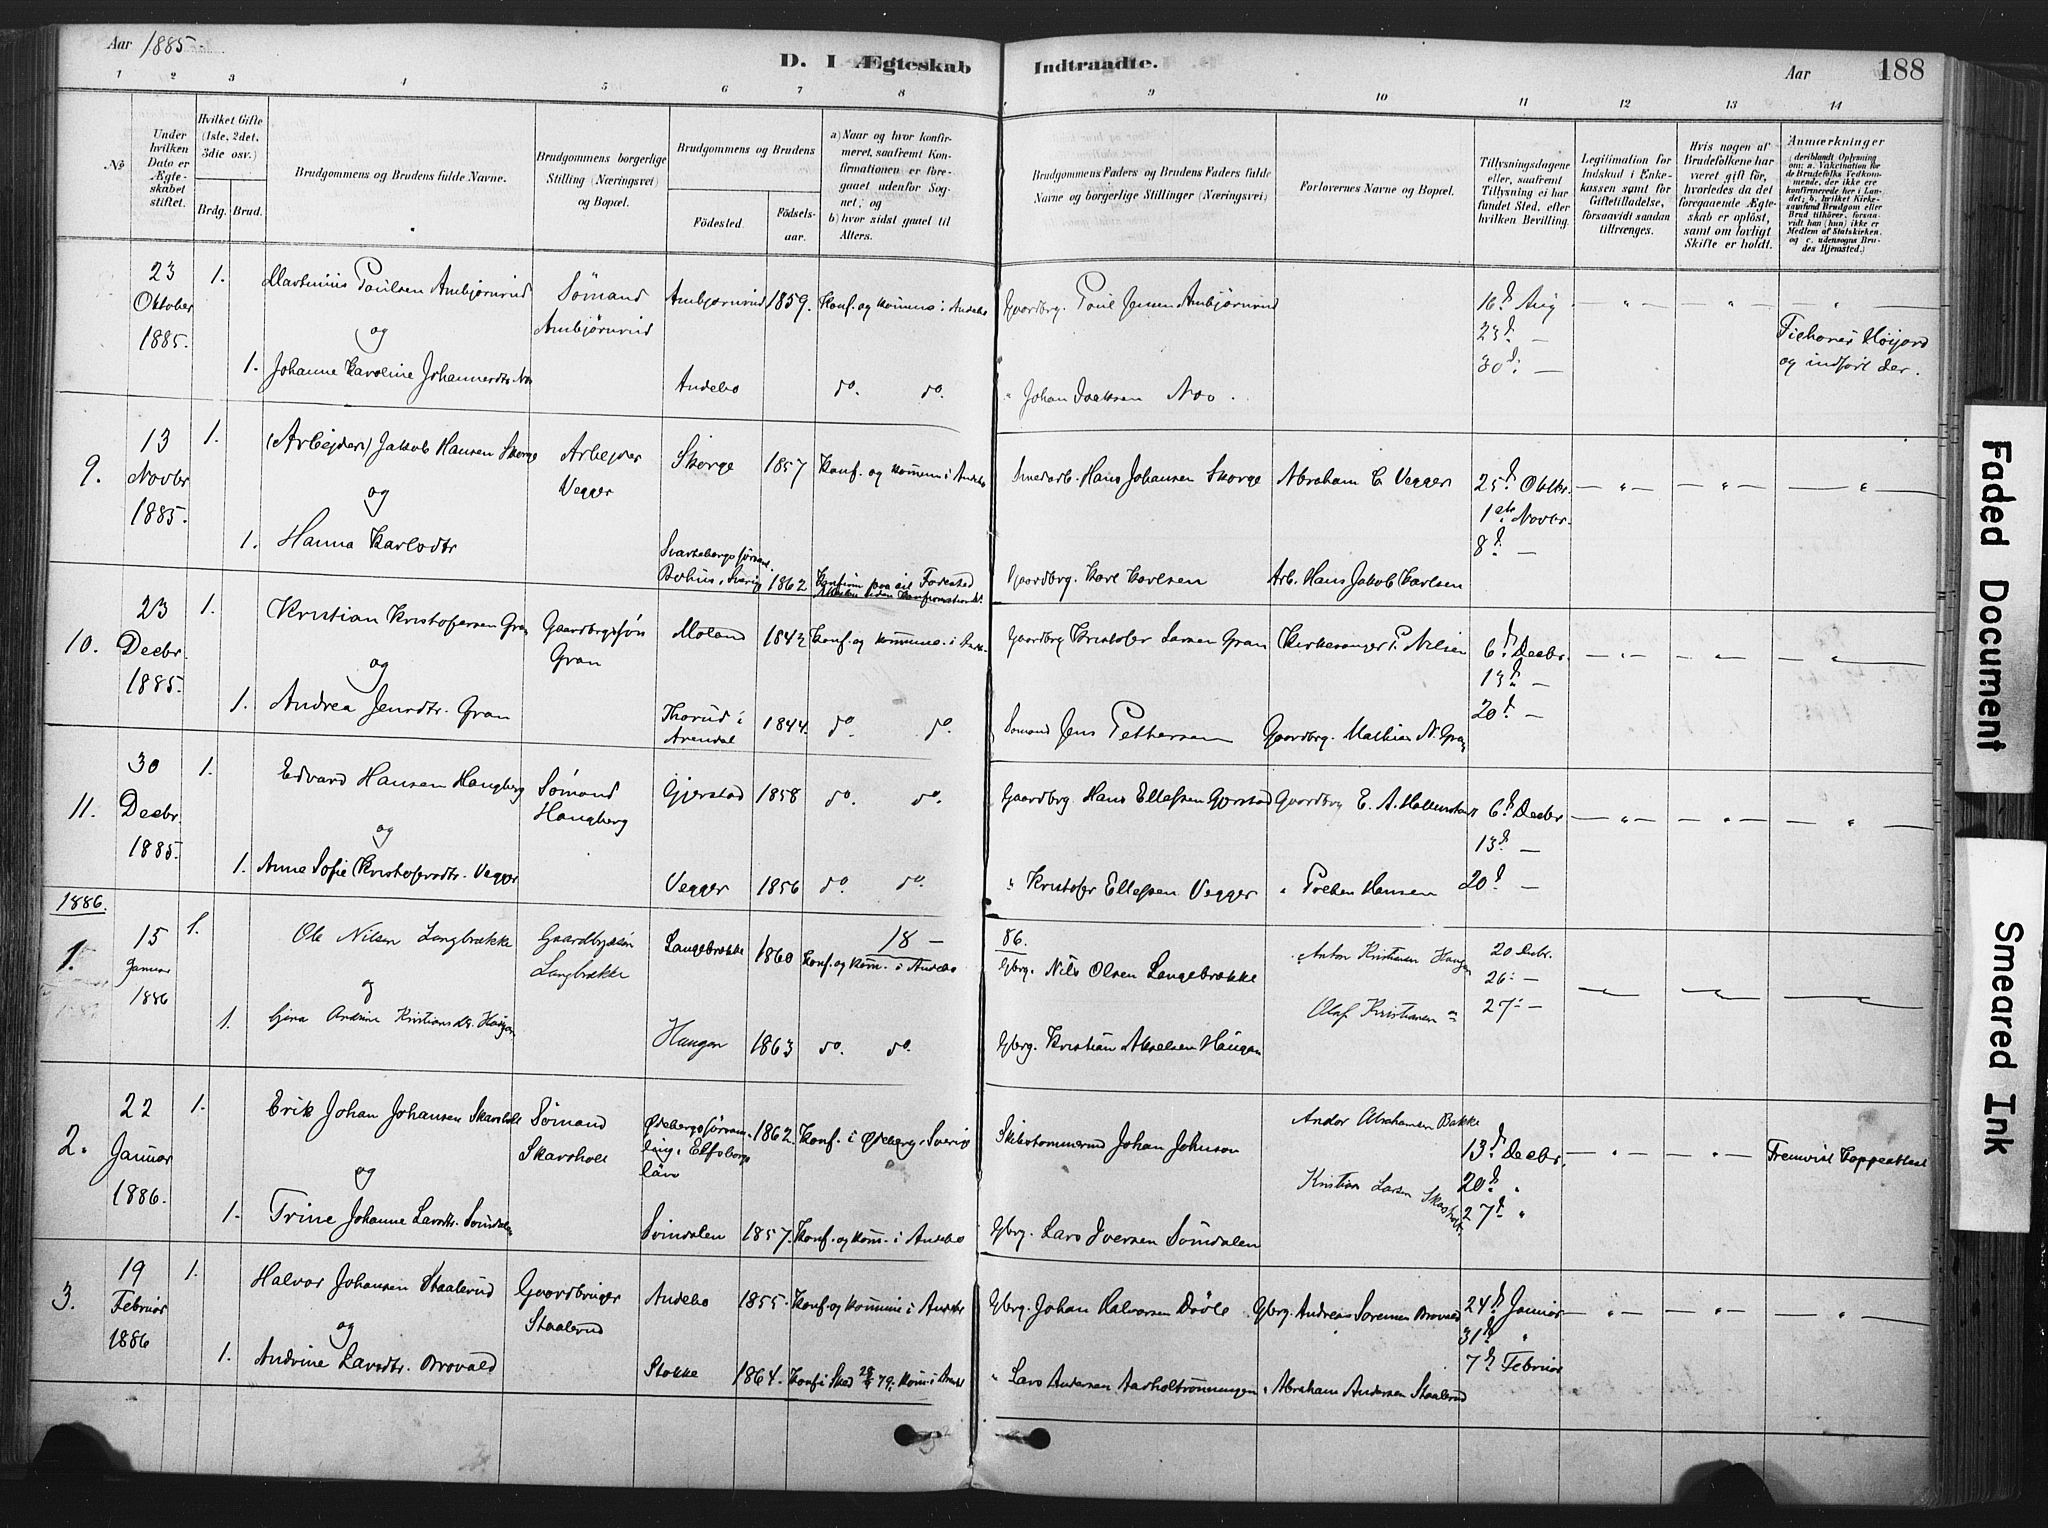 Aar 1885.
D. I Ægteskab Indtraadte.
Aar 188
1 2 3 4 5 6 7 8 9 10 11 12 13 14
No
Under hvilken Dato er Ægteskabet stiftet.
Hvilket Gifte (1ste, 2det, 3die osv.)
Brdg. Brud.
Brudgommens og Brudens fulde Navne.
Brudgommens borgerlige Stilling (Næringsvei) og Bopæl.
Brudgommens og Brudens
Födested. Födselsaar.
a) Naar og hvor konfirmeret, saafremt Konfirmationen er foregaaet udenfor Sognet; og b) hvor sidst gaaet til Alters.
Brudgommens Faders og Brudens Faders fulde Navne og borgerlige Stillinger (Næringsvei)
Forlovernes Navne og Bopæl.
Tillysningsdagene eller, saafremt Tillysning ei har fundet Sted, efter hvilken Bevilling.
Legitimation for Indskud i Enkekassen samt for Giftetilladelse, forsaavidt saadan tiltrænges.
Hvis nogen af Brudefolkene har været gift för, hvorledes da det foregaaende Ægteskab er oplöst, samt om lovligt Skifte er holdt.
Anmærkninger (deriblandt Oplysning om: a. Vakcination for de Brudefolks Vedkommende, der ikke ere konfirmerede her i Landet; b. hvilket Kirkesamfund Brudgom eller Brud tilhörer, forsaavidt han (hun) ikke er Medlem af Statskirken, og c. udensogns Brudes Hjemsted.)
23 Oktober 1885. 1. Martinius Paulsen Ambjørnrud Sømand Ambjørnrud Ambjørnrud 1859. Konf. og kommun. i Andebo Gaardbrg. Poul Jensen Ambjørnrud 16d. Aug 23d. — 30d. — Høijord og indført der.
og
1. Johanne Karoline Johannesdtr. Andebo do. do. " Johan Isaksen Noo.
9. 13 Novbr 1885. 1. (Arbejder) Jakob Hansen Skorge Arbejder Vegger Skorge 1857 Konf. og kommun. i Andebo Hans Johansen Skorge Abraham C. Vegger 25d. Oktbr. 1ste Novbr. 8d. —
og
1. Hanna Karlsdtr Bohus, Sverig 1862 Gaardbrg. Karl Karlsen Arb. Hans Jakob Karlsen
10. 23 Decbr. 1885. 1. Kristian Kristofersen Gran Gaardbrgssøn Gran Moland 1842 Konf. og kommun. i Andb. Gaardbrg Kristofer Larsen Gran Kirkesanger P. Nilsen 6d. Decbr. 13d. — 20d. —
og
1. Andrea Jensdtr. Gran Thorud i Arendal 1844. do. do. Sømand Jens Pettersen Gaardbrg. Mathias N. Gran
11. 30 Decbr. 1885. 1. Edvard Hansen Haugberg Sømand Haugberg Gjerstad 1858 do. do. Gaardbrg. Hans Ellefsen Gjerstad Gaardbrg E. A. 6d. Decbr 13d. — 20d. —
og
1. Anne Sofie Kristofersdtr. Vegger Vegger 1856 do. do. " Kristofer Ellefsen Vegger " Preben Hansen
1886. 18 — 86.
1. 15 Januar 1886 1. Ole Nilsen Langebrække Gaardbrgssøn Langbrække Langebrække 1860 Konf. og kom. i Andebo Gbrg. Nils Olsen Langebrække Anton Kristiansen Haugan 20 Decbr. 26 — 27 —
og Olaf Kristiansen
1. Gina Andrine Kristiansdtr. Haugan Haugan 1863 do. do. Gbrg. Kristian Akselsen Haugan
2. 22 Januar 1886. 1. Erik Johan Johansen Skarsholt Sømand Skarsholt Ødebergs forsamling, Elfsborgs län 1862. Konf. i Ødeberg, Sverig Skibstømmermd Johan Johnson Andor Abrahamsen Bakke 13d. Decbr. 20d. " 27d. " Fremvist Koppeattest
og Kristian Larsen Skarsholt
1. Trine Johanne Larsdtr. Sømdalen Sømdalen 1857. Konf. og kom. i Andebo Gbrg. Lars Iversen Sømdalen
3. 19 Februar 1886 1. Halvor Johansen Staalerud Gaardbruger Staalerud Andebo 1855. Konf. og kommun. i Andebo Gbrg. Johan Halvorsen Døvle Gbrg. Andreas Sørensen Brovald 24d. Januar 31d. " 7d. Februar
og
1. Andrine Larsdtr. Brovald Stokke 1864. Konf. i Skee 79, kom. i Andb " Lars Andersen Aasholtrønningen " Abraham Andersen Staalerud
Faded Document
Smeared Ink